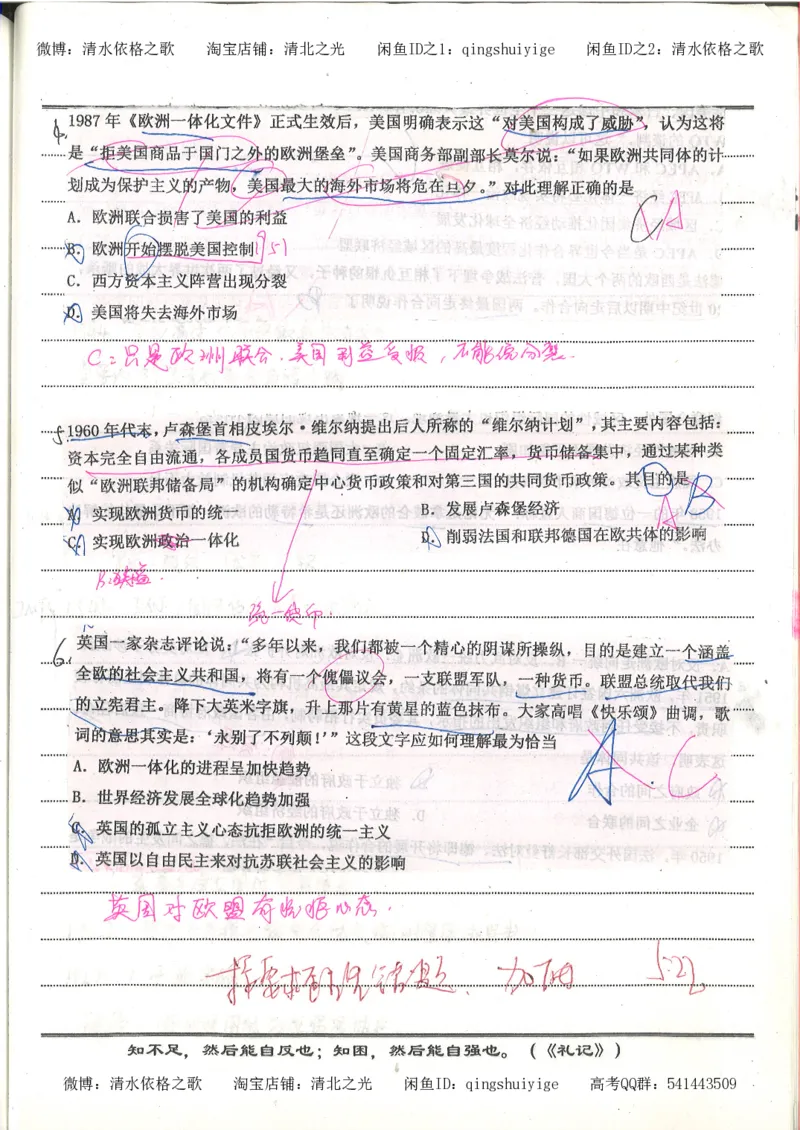 微博：清水依格之歌 淘宝店铺：清北之光 闲鱼ID之1：qingshuiyige 闲鱼ID之2：清水依格之歌
4. 1987年《欧洲一体化文件》正式生效后，美国明确表示这“对美国构成了威胁”，认为这将
是“拒美国商品于国门之外的欧洲堡垒”。美国商务部副部长莫尔说：“如果欧洲共同体的计
划成为保护主义的产物，美国最大的海外市场将危在旦夕。”对此理解正确的是
C A
A．欧洲联合损害了美国的利益
B．欧洲开始摆脱美国控制 951
C．西方资本主义阵营出现分裂
D．美国将失去海外市场
C：只是欧洲联合，美国利益受损，不能说分裂.
5. 1960年代末，卢森堡首相皮埃尔·维尔纳提出后人所称的“维尔纳计划”，其主要内容包括：
资本完全自由流通，各成员国货币趋同直至确定一个固定汇率，货币储备集中，通过某种类
似“欧洲联邦储备局”的机构确定中心货币政策和对第三国的共同货币政策。其目的是
B A
A．实现欧洲货币的统一 B．发展卢森堡经济
C．实现欧洲政治一体化 D．削弱法国和联邦德国在欧共体的影响
统一货币.
6. 英国一家杂志评论说：“多年以来，我们都被一个精心的阴谋所操纵，目的是建立一个涵盖
全欧的社会主义共和国，将有一个傀儡议会，一支联盟军队，一种货币。联盟总统取代我们
的立宪君主。降下大英米字旗，升上那片有黄星的蓝色抹布。大家高唱《快乐颂》曲调，歌
词的意思其实是：‘永别了不列颠！’”这段文字应如何理解最为恰当
A C.
A．欧洲一体化的进程呈加快趋势
B．世界经济发展全球化趋势加强
C．英国的孤立主义心态抗拒欧洲的统一主义
D．英国以自由民主来对抗苏联社会主义的影响
英国对欧盟有抗拒心态.
加油 5.22
知不足，然后能自反也；知困，然后能自强也。（《礼记》）
微博：清水依格之歌 淘宝店铺：清北之光 闲鱼ID：qingshuiyige 高考QQ群：541443509